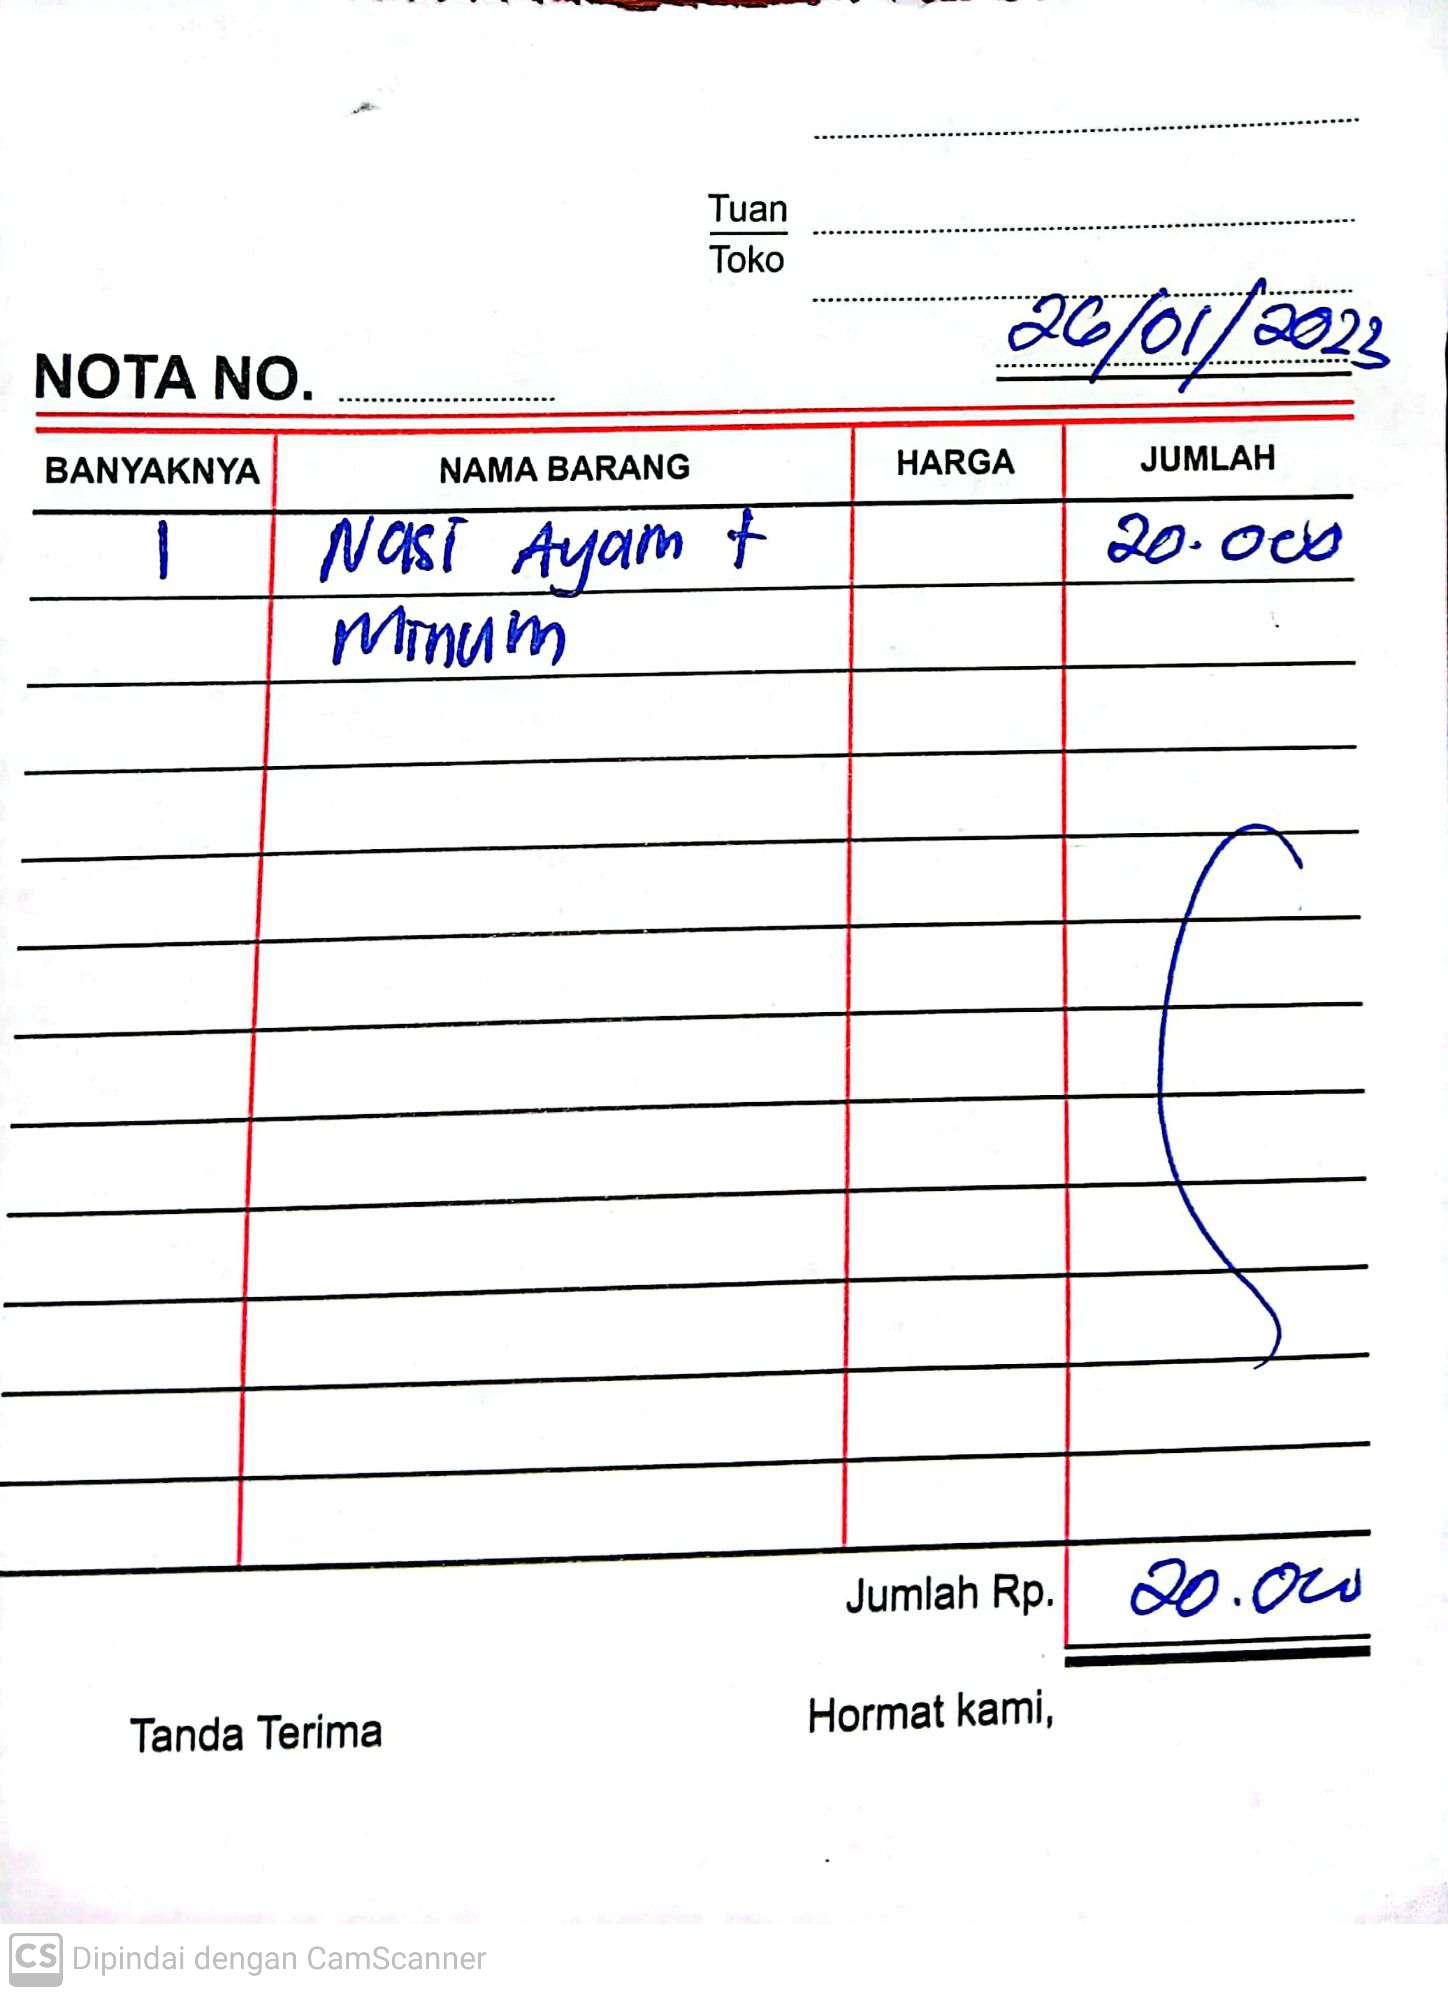 Tuan
Toko
26/01/2023
NOTA NO.
BANYAKNYA NAMA BARANG HARGA JUMLAH
1 Nasi Ayam + 20.000
Minum
Jumlah Rp. 20.000
Tanda Terima Hormat kami,
CS Dipindai dengan CamScanner